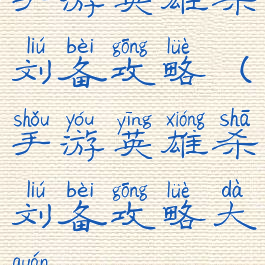 手游英雄杀
liú bèi gōng lüè
刘备攻略（
shǒu yóu yīng xióng shā
手游英雄杀
liú bèi gōng lüè dà
刘备攻略大
quán